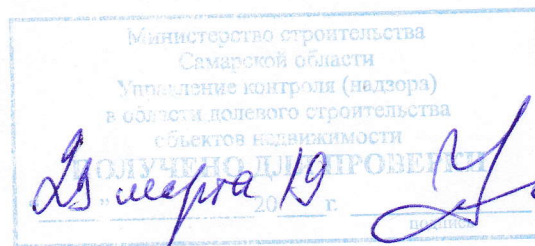 Министерство строительства
Самарской области
Управление контроля (надзора)
в области долевого строительства
объектов недвижимости
ПОЛУЧЕНО ДЛЯ ПРОВЕРКИ
29 марта 2019 г.
подпись